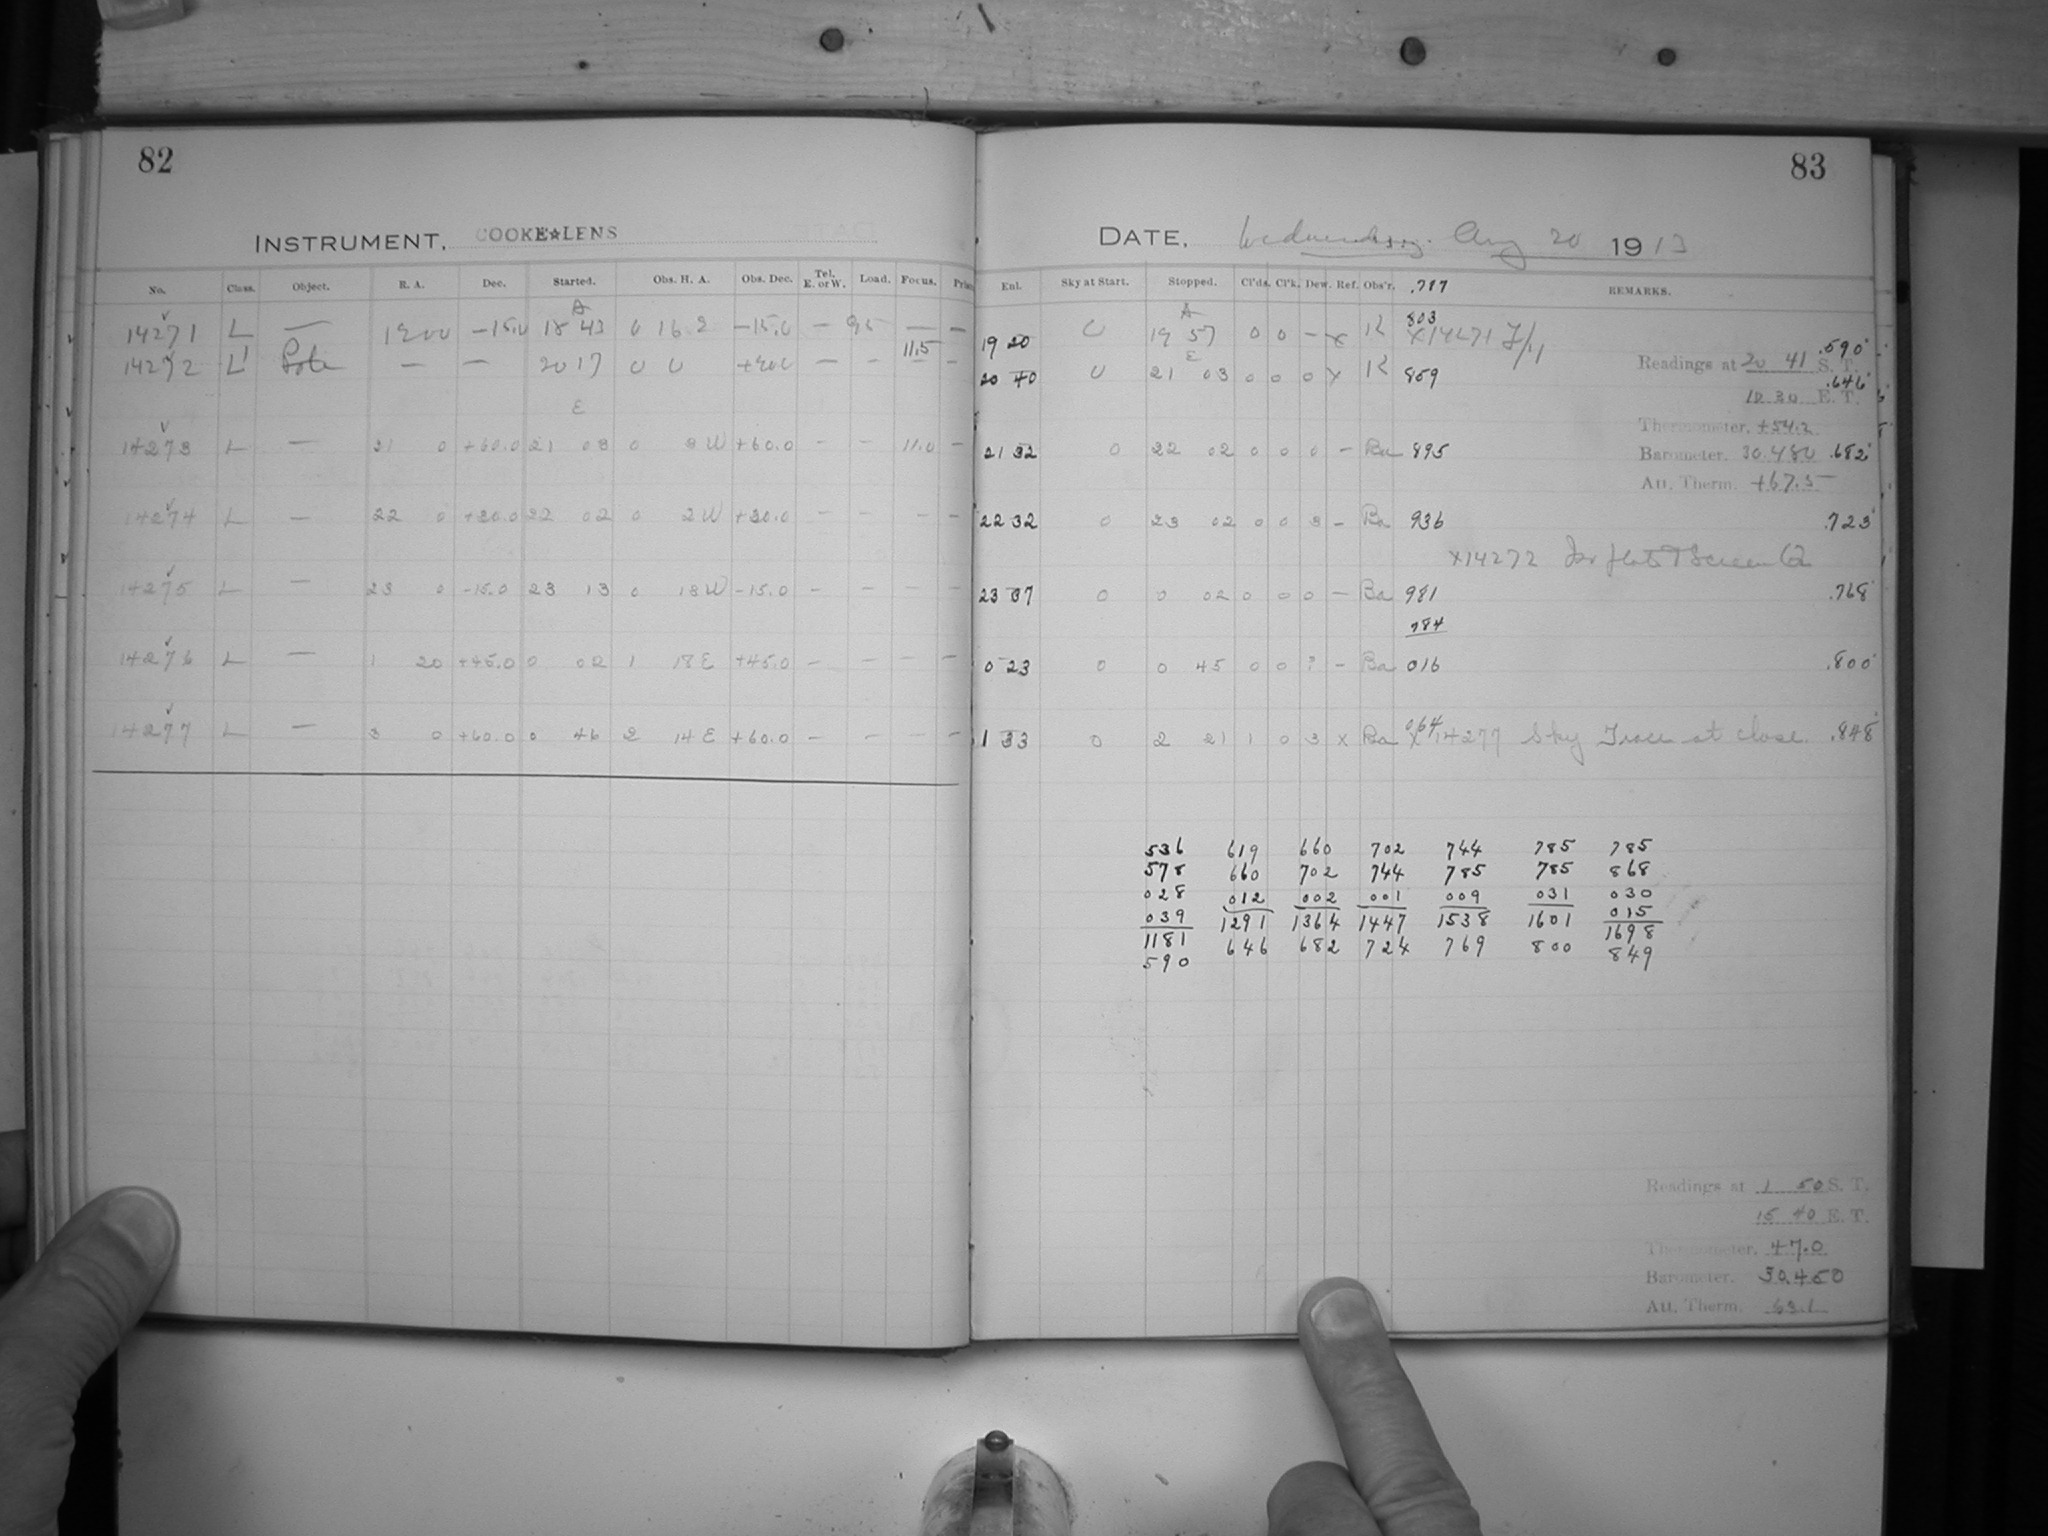 82
INSTRUMENT, COOKE★LENS
No. Class. Object. R. A. Dec. Started. Obs. H. A. Obs. Dec. Tel. E. or W. Load. Focus.
A
14271 L — 19 00 −15.0 18 43 0 16.2 −15.0 — 95 — —
11.5
14272 L Pole — — 20 17 0 0 +90.0 — — — —
E
14273 L — 21 0 +60.0 21 03 0 3 W +60.0 — — 11.0 —
14274 L — 22 0 +30.0 22 02 0 2 W +30.0 — — — —
14275 L — 23 0 −15.0 23 13 0 13 W −15.0 — — — —
14276 L — 1 20 +45.0 0 02 1 18 E +45.0 — — — —
14277 L — 3 0 +60.0 0 46 2 14 E +60.0 — — — —
83
DATE, Wednesday. Aug 20 1913
Ent. Sky at Start. Stopped. Cl'ds. Cl'k. Dew. Ref. Obs'r. .717 REMARKS.
A
803
19 20 0 19 57 0 0 — x K x14271 .590
E
Readings at 20 41 S. T.
20 40 0 21 03 0 0 0 x K 859 .646
12 30 E. T.
Thermometer, +54.2
21 32 0 22 02 0 0 0 — Ba 895 Barometer. 30.480 .682
Att. Therm. +67.5
22 32 0 23 02 0 0 3 — Ba 936 .723
x14272 Screen
23 37 0 0 02 0 0 0 — Ba 981 .768
784
0 23 0 0 45 0 0 ? — Ba 016 .800
064
1 33 0 2 21 1 0 3 x Ba x14277 Sky Trace at close. .848
536 619 660 702 744 785 785
578 660 702 744 785 785 868
028 012 002 001 009 031 030
039 1291 1364 1447 1538 1601 015
1181 646 682 724 769 800 1698
590 849
Readings at 1 50 S. T.
15 40 E. T.
Thermometer, 47.0
Barometer. 30.450
Att. Therm. 63.1